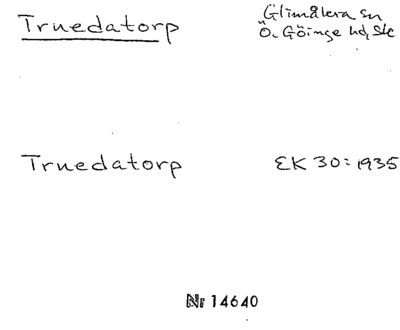 Truedatorp
Glimåkra sn
Ö. Göinge hd, Sk
Truedatorp
EK 30: 1935
Nr 14640